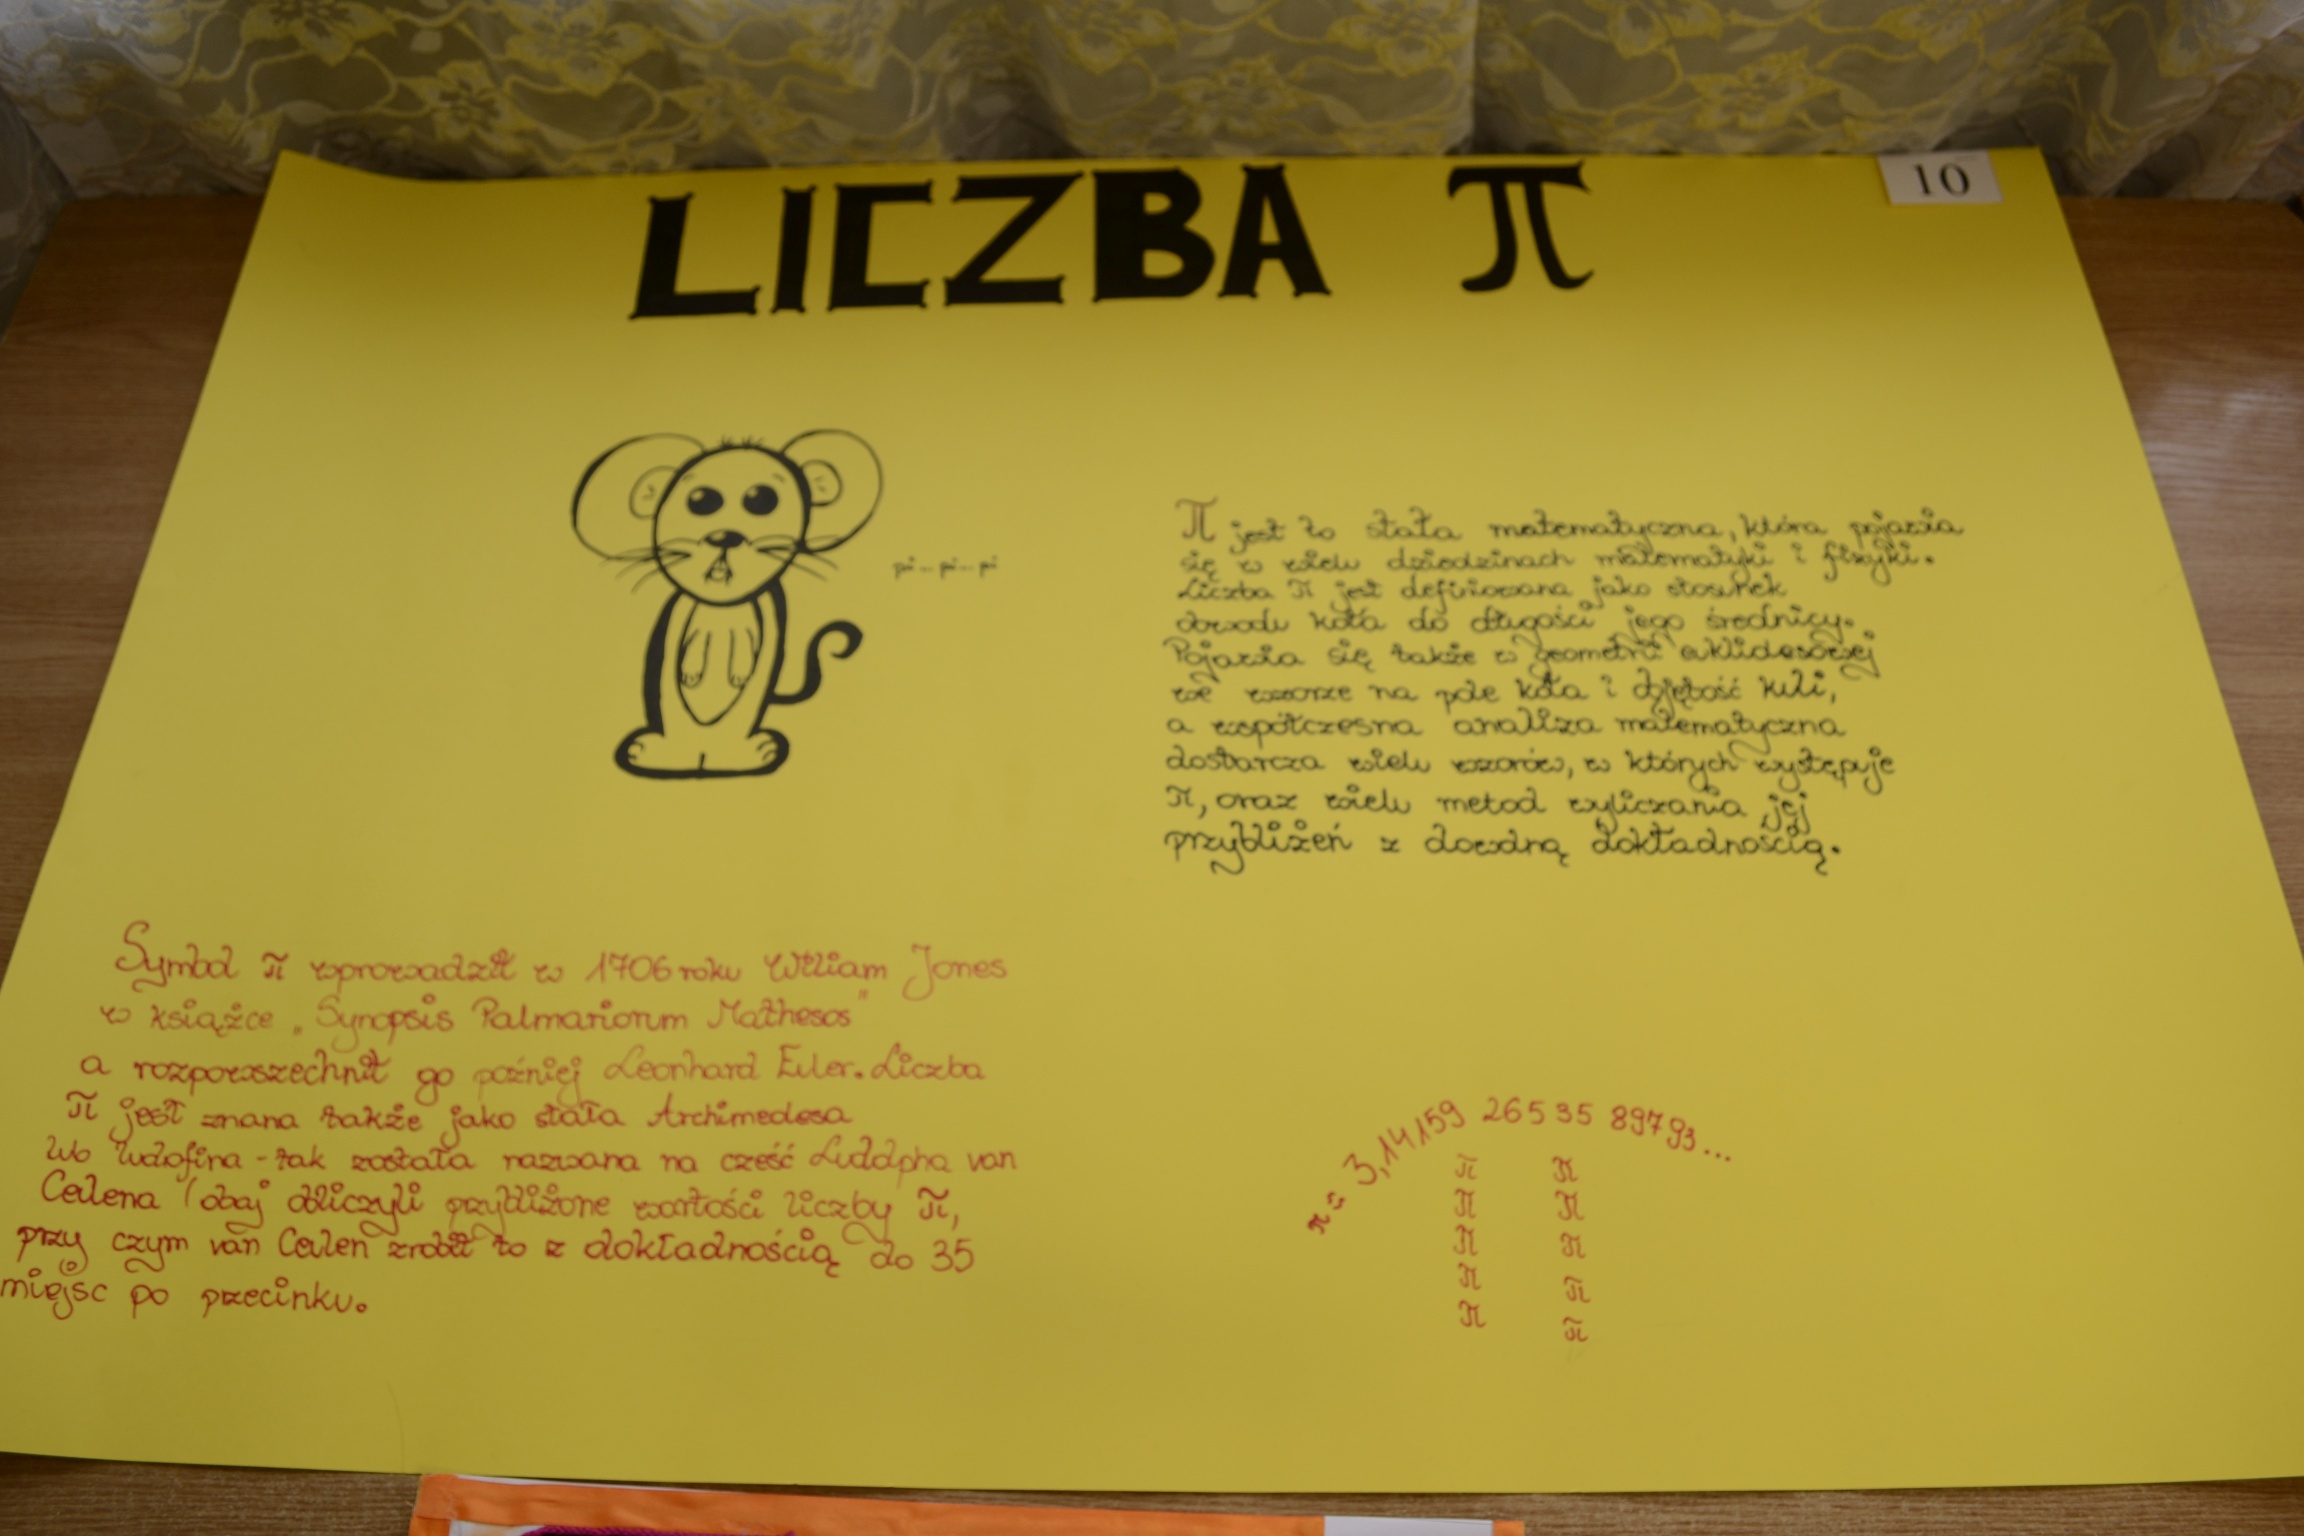 LICZBA π
10
pi-pi-pi
π jest to stała matematyczna, która pojawia
się w wielu dziedzinach matematyki i fizyki.
Liczba π jest definiowana jako stosunek
obwodu koła do długości jego średnicy.
Pojawia się także w geometrii euklidesowej
we wzorze na pole koła i objętość kuli,
a współczesna analiza matematyczna
dostarcza wielu wzorów, w których występuje
π, oraz wielu metod wyliczania jej
przybliżeń z dowolną dokładnością.
Symbol π wprowadził w 1706 roku William Jones
w książce „Synopsis Palmariorum Mathesos"
a rozpowszechnił go poźniej Leonhard Euler. Liczba
π jest znana także jako stała Archimedesa
lub ludolfina - tak została nazwana na cześć Luddpha van
Ceulena (obaj obliczyli przybliżone wartości liczby π,
przy czym van Ceulen zrobił to z dokładnością do 35
miejsc po przecinku.
π= 3,14159 26535 89793...
π π
π π
π π
π π
π π